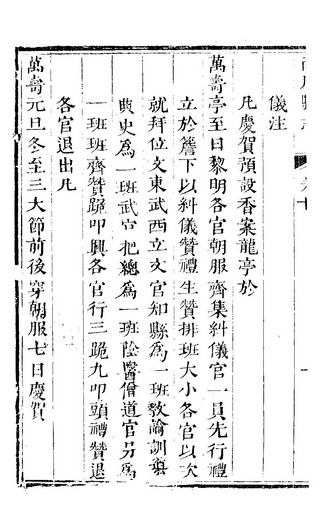 儀注
凡慶賀預設香案龍亭於
萬壽亭至日黎明各官朝服齊集糾儀官一員先行禮
立於簷下以糾儀贊禮生贊排班大小各官以次
就拜位文東武西立文官知縣為一班教諭訓藥
典史為一班武官把總為一班陰醫僧道官另為
一班班齊贊跪叩興各官行三跪九叩頭禮贊退
各官退出凡
萬壽元旦冬至三大節前後穿朝服七日慶賀